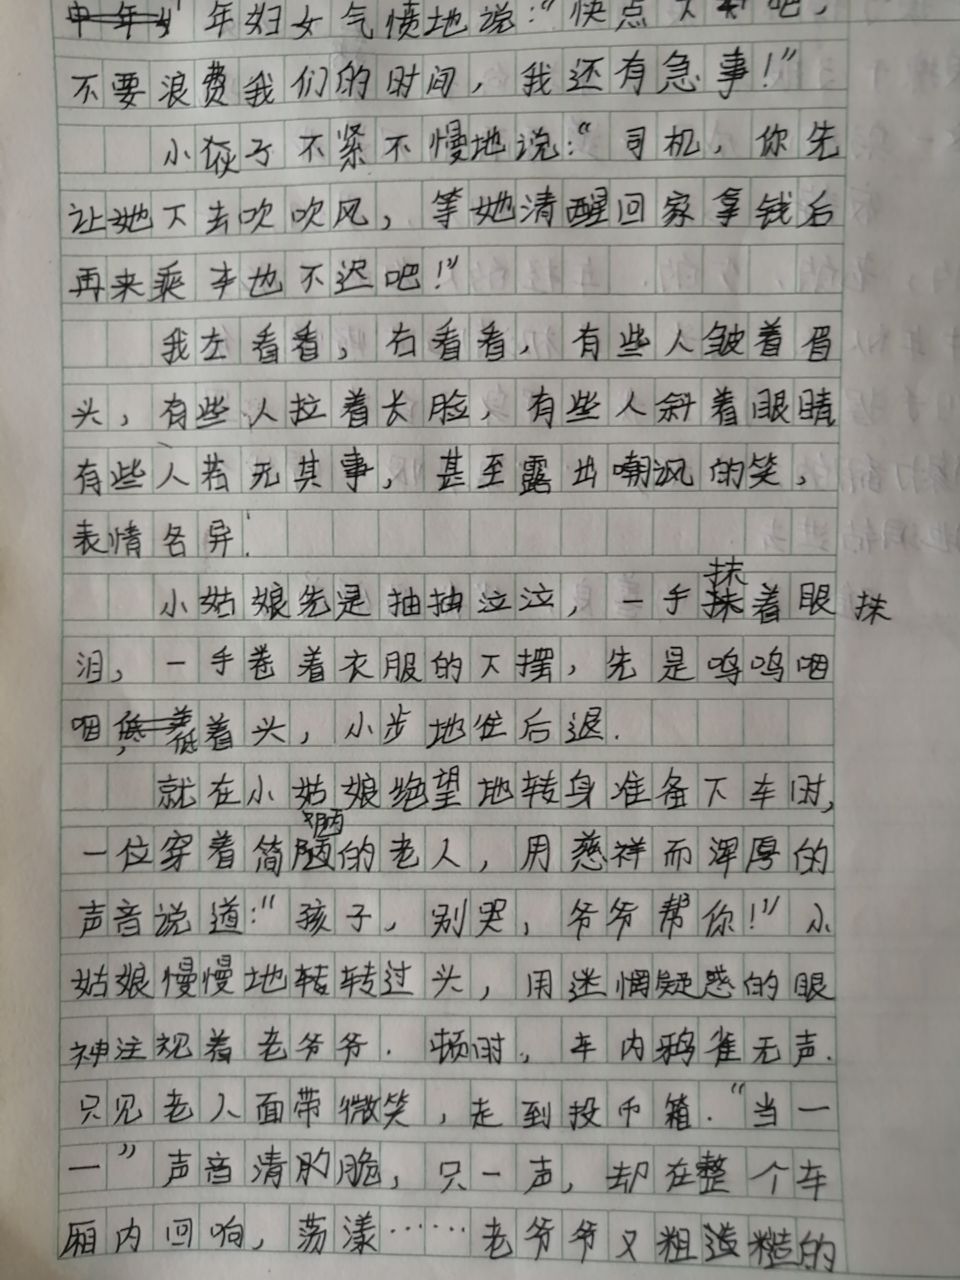 年妇女气愤地说：“快点下车吧，
不要浪费我们的时间，我还有急事！”
小孩子不紧不慢地说：“司机，你先
让她下去吹吹风，等她清醒回家拿钱后
再来乘车也不迟吧！”
我左看看，右看看，有些人皱着眉
头，有些人拉着长脸，有些人斜着眼睛
有些人若无其事，甚至露出嘲讽的笑，
表情各异.
小姑娘先是抽抽泣泣，一手抹着眼 抹
泪，一手卷着衣服的下摆，先是呜呜咽
咽，低着头，小步地往后退.
就在小姑娘绝望地转身准备下车时，
一位穿着简陋的老人，用慈祥而浑厚的
声音说道：“孩子，别哭，爷爷帮你！”小
姑娘慢慢地转转过头，用迷惘疑惑的眼
神注视着老爷爷.顿时，车内鸦雀无声.
只见老人面带微笑，走到投币箱.“当一
一”声音清脆，只一声，却在整个车
厢内回响，荡漾……老爷爷又粗造糙的